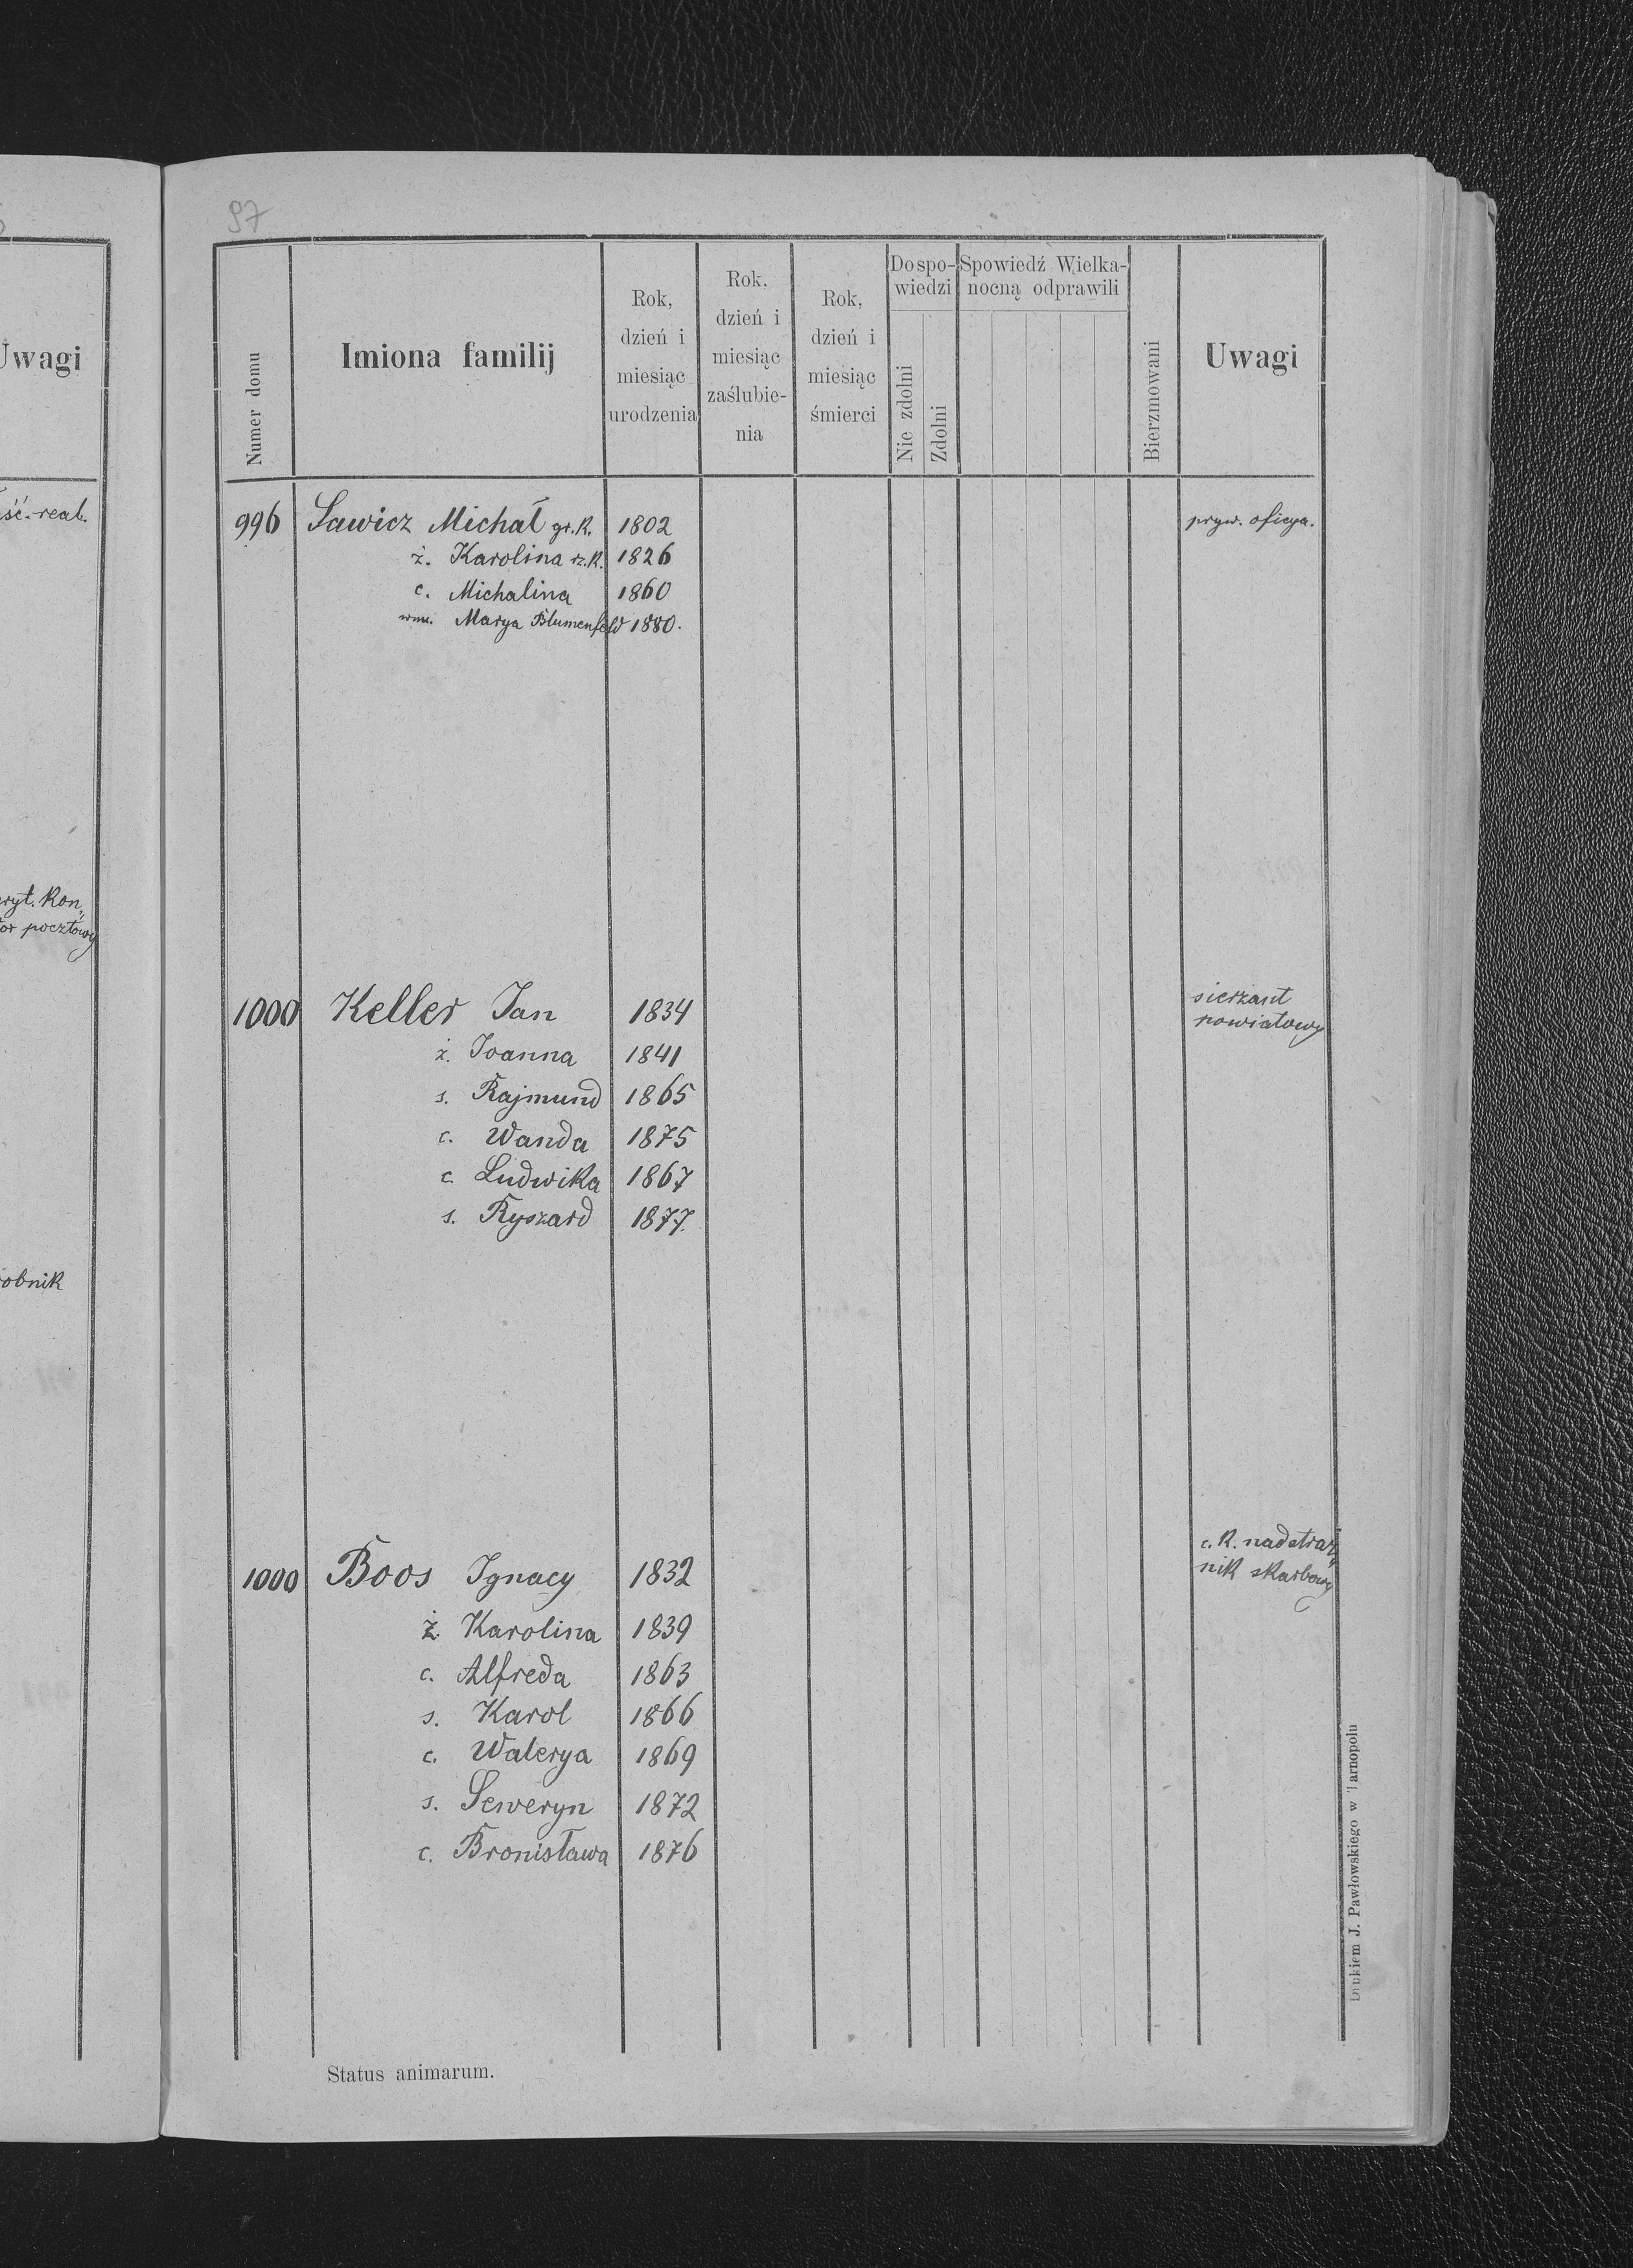 97
Numer domu
Imiona familij
Rok, dzień i miesiąc urodzenia
Rok, dzień i miesiąc zaślubie-nia
Rok, dzień i miesiąc śmierci
Do spo-wiedzi
Nie zdolni
Zdolni
Spowiedź Wielka-nocną odprawili
Bierzmowani
Uwagi
996 Sawicz Michał gr.k. 1802 pryw. oficya.
ż. Karolina rz.k. 1826
c. Michalina 1860
wnu. Marya Blumenfeld 1880.
1000 Keller Jan 1834 sierżant
powiatowy
ż. Joanna 1841
s. Rajmund 1865
c. Wanda 1875
c. Ludwika 1867
s. Ryszard 1877.
1000 Boos Ignacy 1832 c.k. nadstraż„
nik skarbowy
ż. Karolina 1839
c. Alfreda 1863
s. Karol 1866
c. Walerya 1869
s. Seweryn 1872
c. Bronisława 1876
Status animarum.
Drukiem J. Pawłowskiego w Tarnopolu
Uwagi
ść.-real.
ryt. Kon„
or pocztowy
obnik